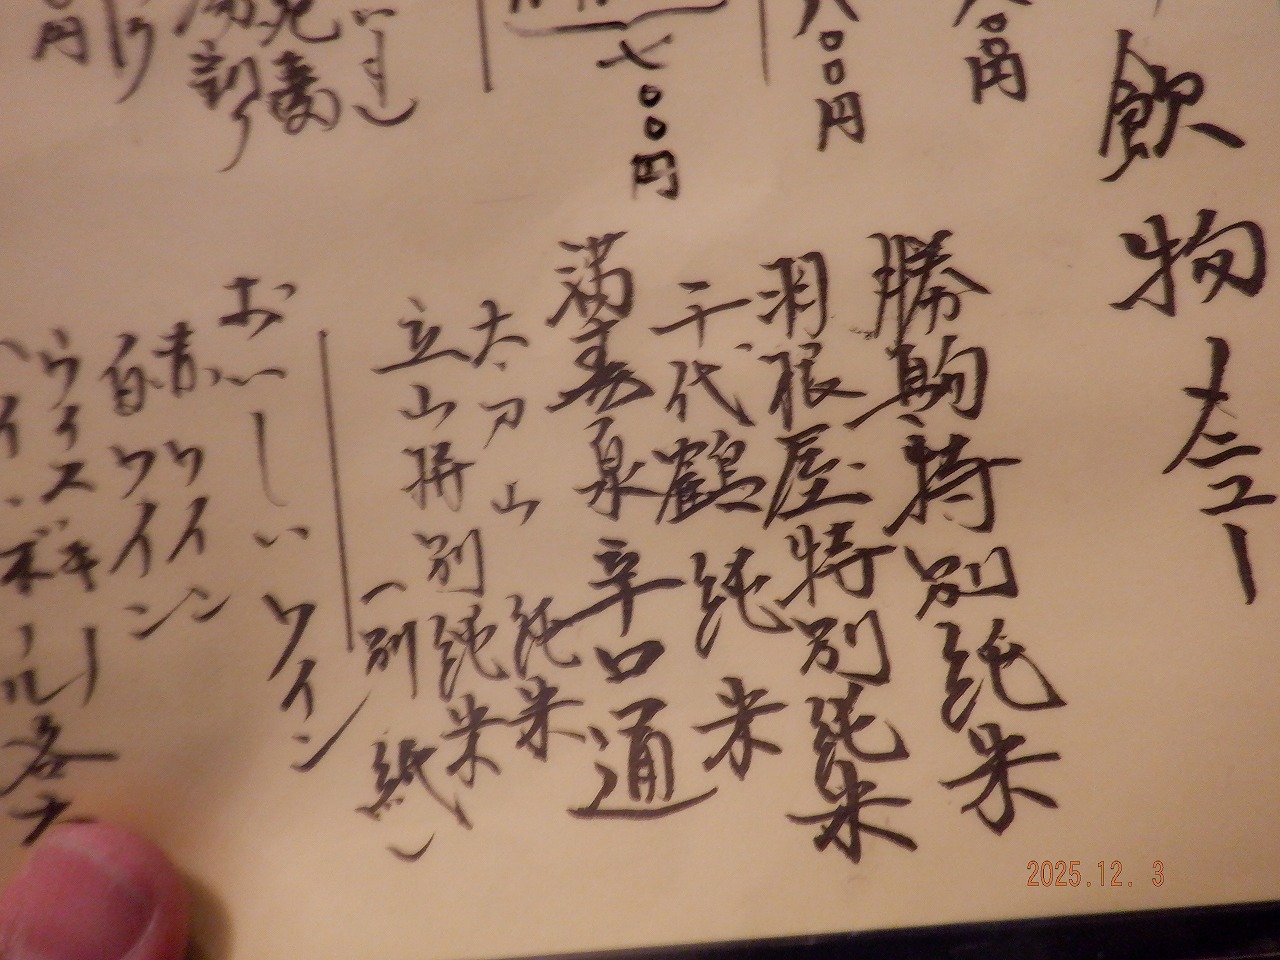 飲物メニュー
勝駒特別純米
羽根屋特別純米
千代鶴 純米
満寿泉 辛口 通
太刀山 純米
立山 特別純米
(別紙)
おいしいワイン
赤ワイン
白ワイン
ウィスキー
ハイボール各
八〇〇円
八〇〇円
七〇〇円
円
2025.12. 3